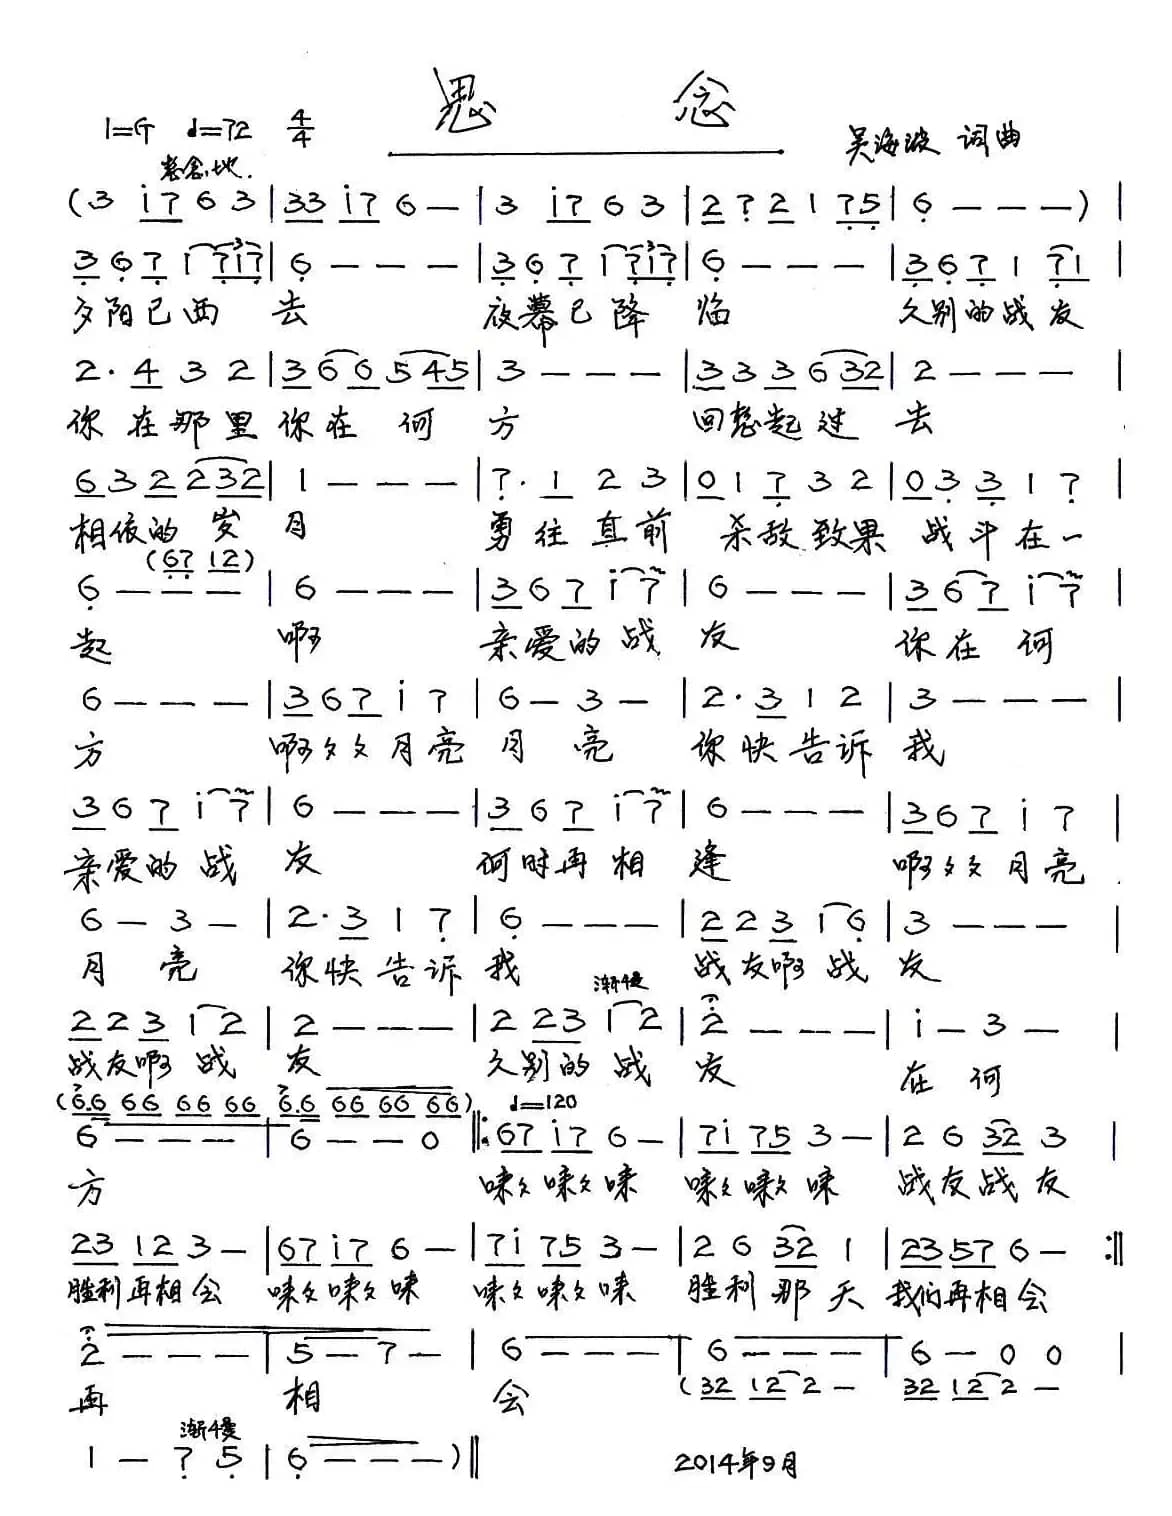 思 念
1=G ♩=72 4/4
吴海波 词曲
思念地.
(3 i7 6 3 | 33 i7 6 — | 3 i7 6 3 | 2 7 2 1 75 | 6 — — — ) |
3 6 7 1 7i7 | 6 — — — | 3 6 7 1 7i7 | 6 — — — | 3 6 7 1 71 |
夕阳已西 去 夜幕已降 临 久别的战友
2· 4 3 2 | 3 6 6 5 45 | 3 — — — | 3 3 3 6 32 | 2 — — — |
你在那里 你在 何 方 回想起过 去
6 3 2 2 32 | 1 — — — | 7· 1 2 3 | 0 1 7 3 2 | 0 3 3 1 7 |
相依的 岁 月 勇往直前 杀敌致果 战斗在一
(67 12)
6 — — — | 6 — — — | 3 6 7 i 7 | 6 — — — | 3 6 7 i 7 |
起 啊 亲爱的战 友 你在 何
6 — — — | 3 6 7 i 7 | 6 — 3 — | 2· 3 1 2 | 3 — — — |
方 啊 月亮 月 亮 你快告诉 我
3 6 7 i 7 | 6 — — — | 3 6 7 i 7 | 6 — — — | 3 6 7 i 7 |
亲爱的 战 友 何时再相 逢 啊 月亮
6 — 3 — | 2· 3 1 7 | 6 — — — | 2 2 3 1 6 | 3 — — — |
月 亮 你快告诉 我 战友啊 战 友
渐慢
2 2 3 1 2 | 2 — — — | 2 23 i 2 | 2 — — — | i — 3 — |
战友啊 战 友 久别的 战 友 在 何
(6.6 66 66 66 6.6 66 66 66) ♩=120
6 — — — | 6 — — 0 ‖: 67 i7 6 — | 7i 75 3 — | 2 6 32 3 |
方 唻 唻 唻 唻 唻 唻 战友战友
23 12 3 — | 67 i7 6 — | 7i 75 3 — | 2 6 32 1 | 23 57 6 — :‖
胜利再相会 唻 唻 唻 唻 唻 唻 胜利 那 天 我们再相会
2 — — — | 5 — 7 — | 6 — — — | 6 — — — | 6 — 0 0 |
再 相 会 (32 12 2 — 32 12 2 —
渐慢
1 — 7 5 | 6 — — — ) ‖
2014年9月